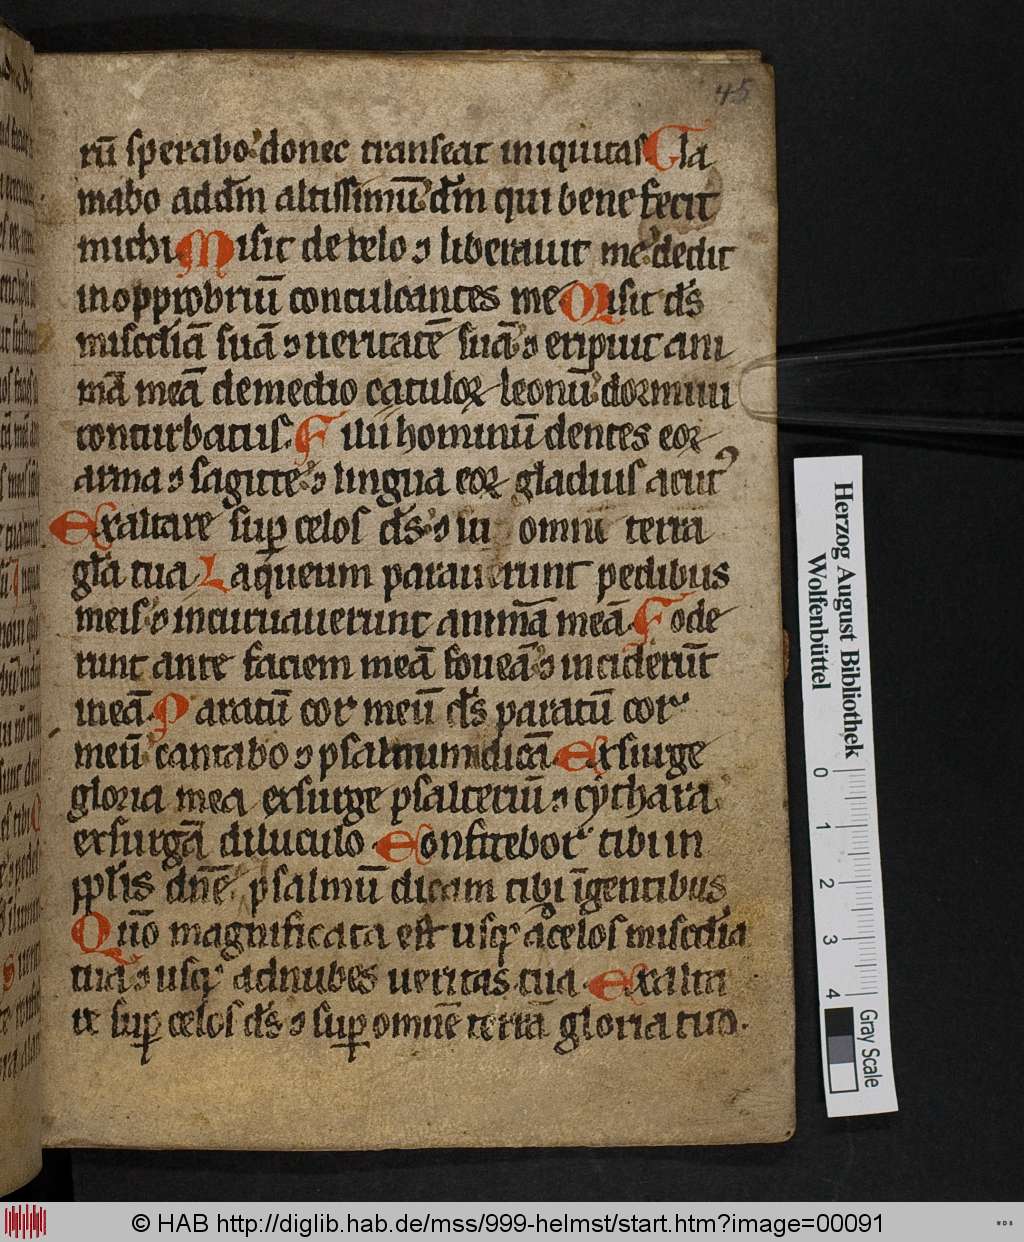 45
rū sperabo donec transeat iniquitas Cla
mabo ad dm̄ altissimū dm̄ qui bene fecit
michi Misit de celo ⁊ liberauit me dedit
in opprobriū conculcantes me Misit ds̄
miscd̄iā suā ⁊ ueritatē suā ⁊ eripuit ani
mā meā de medio catuloꝝ leonū dormiui
conturbatus. Filii hominū dentes eoꝝ
arma ⁊ sagitte ⁊ lingua eoꝝ gladius acutꝰ
Exaltare suꝑ celos ds̄ ⁊ in omni terra
gl̄a tua Laqueum parauerunt pedibus
meis ⁊ incuruauerunt animā meā Fode
runt ante faciem meā foueā ⁊ inciderūt
in eā Paratū cor meū ds̄ paratū cor
meū cantabo ⁊ psalmum dicā Exsurge
gloria mea exsurge psalteriū ⁊ cythara
exsurgā diluculo Confitebor tibi in
ppl̄is dnē psalmū dicam tibi ī gentibus
Qūo magnificata est usqꝫ ad celos miscd̄ia
tua ⁊ usqꝫ ad nubes ueritas tua Exalta
re suꝑ celos ds̄ ⁊ suꝑ omnē terrā gloria tua.
Herzog August Bibliothek
Wolfenbüttel
0 1 2 3 4
Gray Scale
© HAB http://diglib.hab.de/mss/999-helmst/start.htm?image=00091